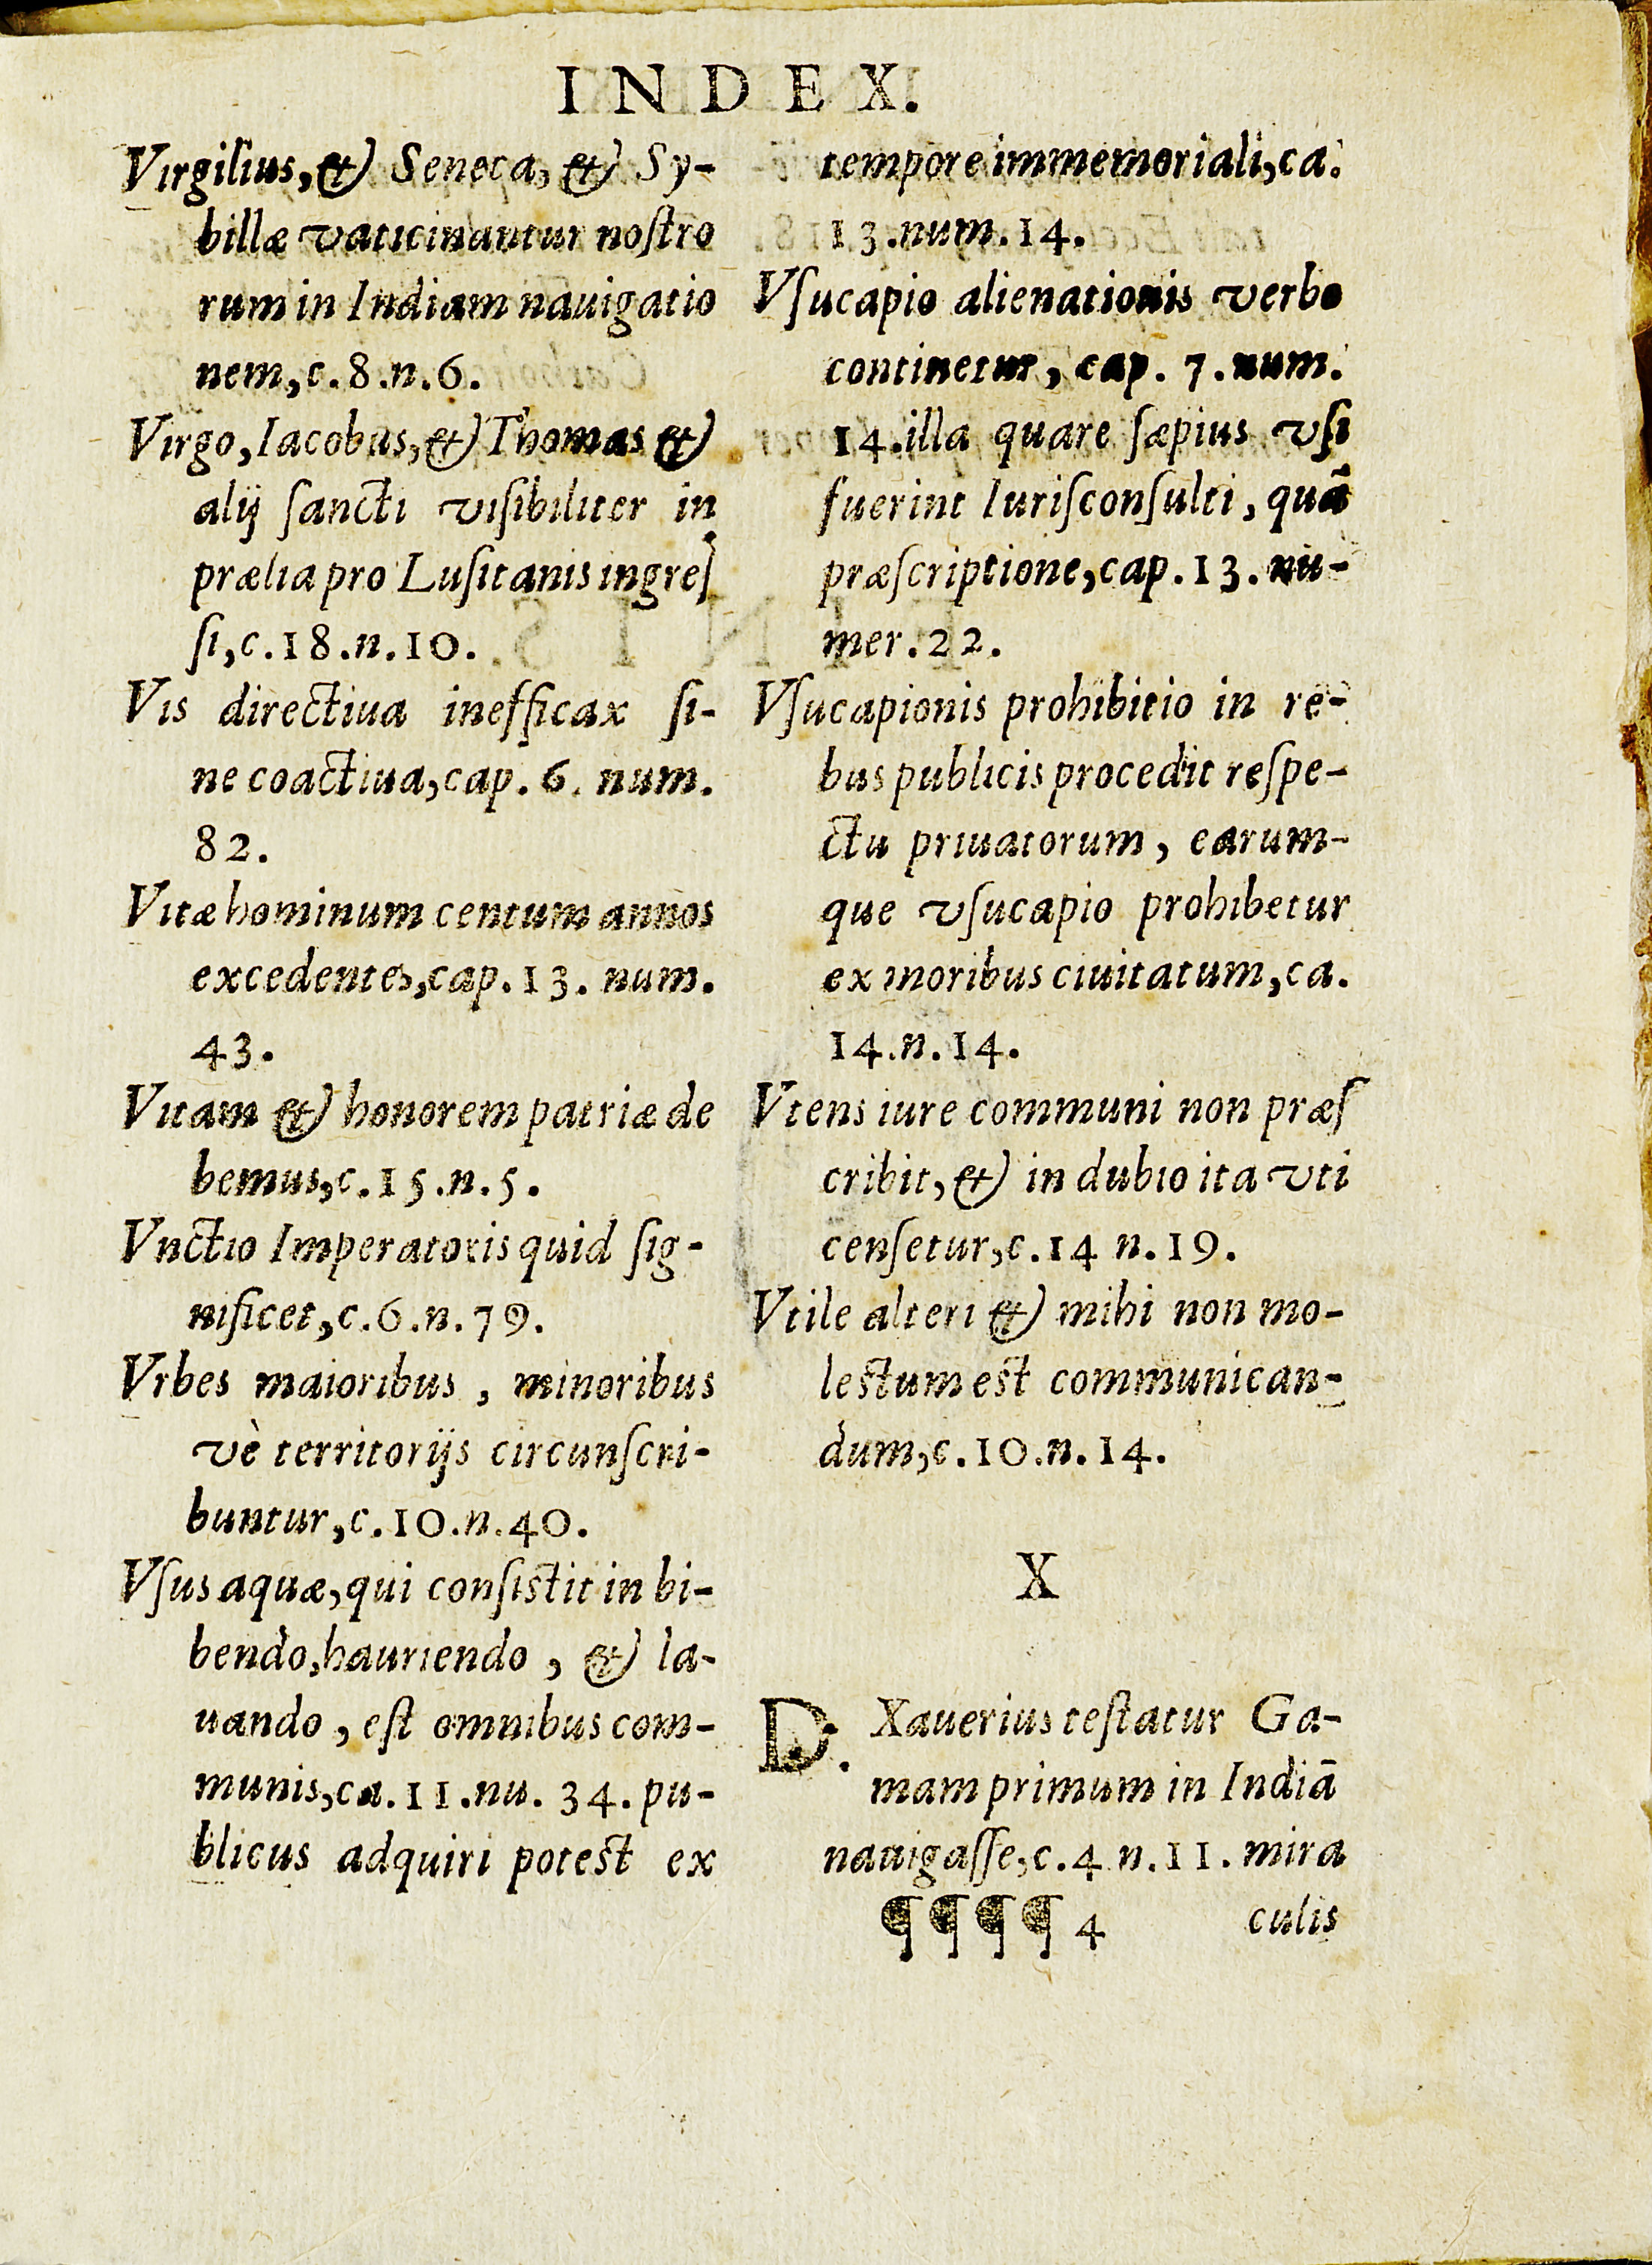 INDEX.
Virgilius, & Seneca, & Sy-
billæ vaticinantur noſtro
rum in Indiam nauigatio
nem, c.8.n.6.
Virgo, Iacobus, & Thomas &
alij ſancti viſibiliter in
prælia pro Luſitanis ingreſ
ſi, c.18.n.10.
Vis directiua inefficax ſi-
ne coactiua, cap.6. num.
82.
Vitæ hominum centum annos
excedentes, cap.13. num.
43.
Vitam & honorem patriæ de
bemus, c.15.n.5.
Vnctio Imperatoris quid ſig-
nificet, c.6.n.79.
Vrbes maioribus, minoribus
vè territorijs circunſcri-
buntur, c.10.n.40.
Vſus aquæ, qui conſistit in bi-
bendo, hauriendo, & la-
uando, eſt omnibus com-
munis, ca.11.nu. 34. pu-
blicus adquiri potest ex
tempore immemoriali, ca.
13.num.14.
Vſucapio alienationis verbo
continetur, cap. 7. num.
14. illa quare ſæpius vſi
fuerint Iuriſconſulti, quā
præſcriptione, cap.13. nu-
mer.22.
Vſucapionis prohibitio in re-
bus publicis procedit reſpe-
ctu priuatorum, earum-
que vſucapio prohibetur
ex moribus ciuitatum, ca.
14.n.14.
Vtens iure communi non præſ
cribit, & in dubio ita vti
cenſetur, c.14 n.19.
Vtile alteri & mihi non mo-
lestum est communican-
dum, c.10.n.14.
X
D. Xauerius teſtatur Ga-
mam primum in Indiā
nauigaſſe, c.4 n.11. mira
¶¶¶¶ 4 culis